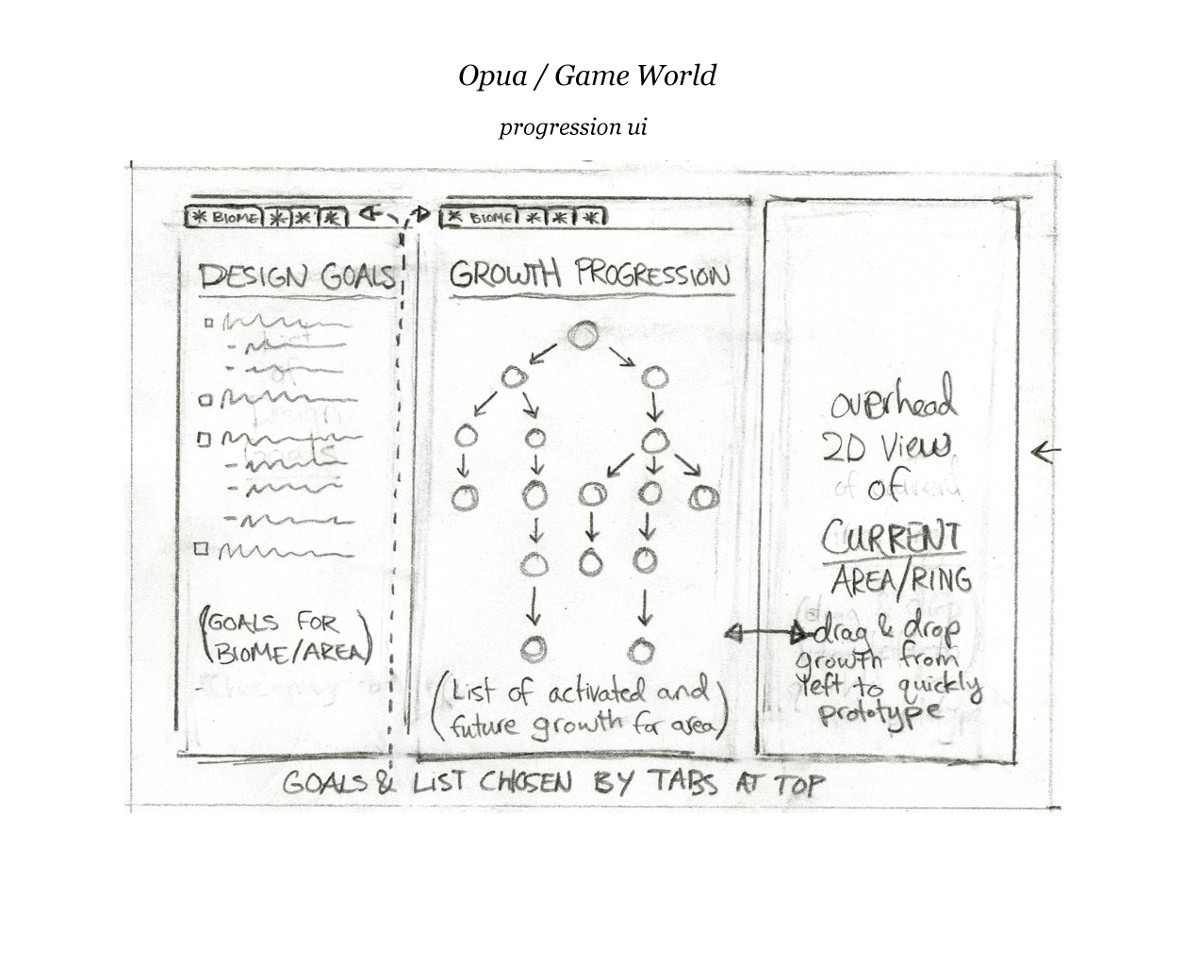 Opua / Game World
progression ui
* BIOME * * *
* BIOME * * *
DESIGN GOALS
(GOALS FOR
BIOME/AREA)
GROWTH PROGRESSION
(List of activated and
future growth for area)
overhead
2D View
of
CURRENT
AREA/RING
drag & drop
growth from
left to quickly
prototype
GOALS & LIST CHOSEN BY TABS AT TOP